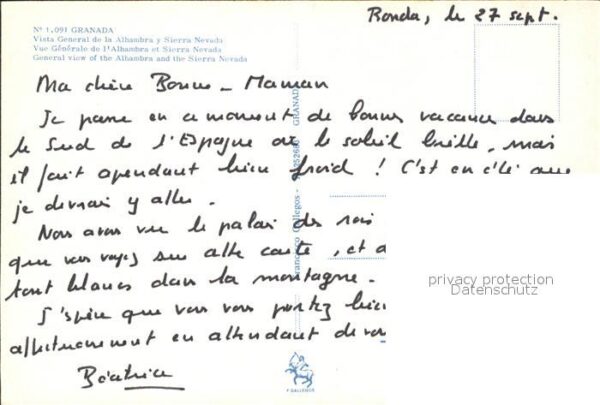 Nº 1.091 GRANADA
Vista General de la Alhambra y Sierra Nevada
Vue Générale de l'Alhambra et Sierra Nevada
General view of the Alhambra and the Sierra Nevada
Ronda, le 27 sept.
Ma chère Bonne-Maman
Je passe en ce moment de bonnes vacances dans
le Sud de l'Espagne où le soleil brille, mais
il fait cependant bien froid ! C'est en été que
je devrais y aller.
Nous avons vu le palais des rois
que vous voyez sur cette carte, et
tout blancs dans la montagne.
J'espère que vous vous portez bien
affectueusement en attendant de
Béatrice
Francisco Gallegos -
GRANADA
F. GALLEGOS
privacy protection
Datenschutz